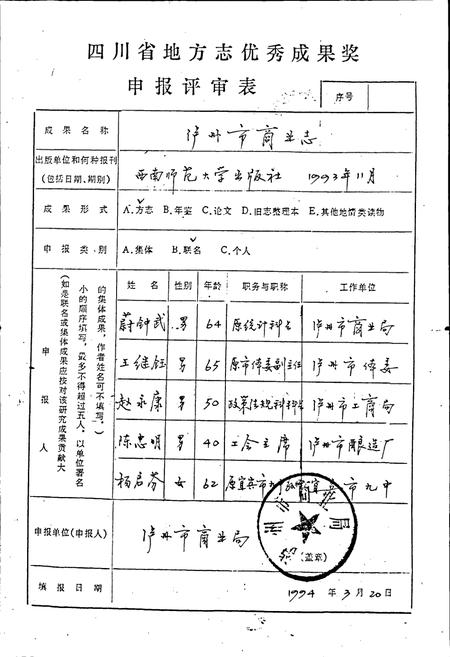 四川省地方志优秀成果奖
申报评审表
序号
成果名称 泸州市商业志
出版单位和何种报刊
(包括日期、期别) 西南师范大学出版社 1993年11月
成果形式 A.方志 B.年鉴 C.论文 D.旧志整理本 E.其他地情类读物
申报类别 A.集体 B.联名 C.个人
申报人
(如是联名或集体成果应按对该研究成果贡献大
小的顺序填写，最多不得超过五人，以单位署名
的集体成果，作者姓名可不填写。)
姓名 性别 年龄 职务与职称 工作单位
蔚钟武 男 64 原统计科长 泸州市商业局
王继钰 男 65 原市体委副主任 泸州市体委
赵永康 男 50 政策法规科科长 泸州市工商局
陈忠明 男 40 工会主席 泸州市酿造厂
杨启芬 女 62 市九中
申报单位(申报人) 泸州市商业局
(盖章)
填报日期 1994年3月20日